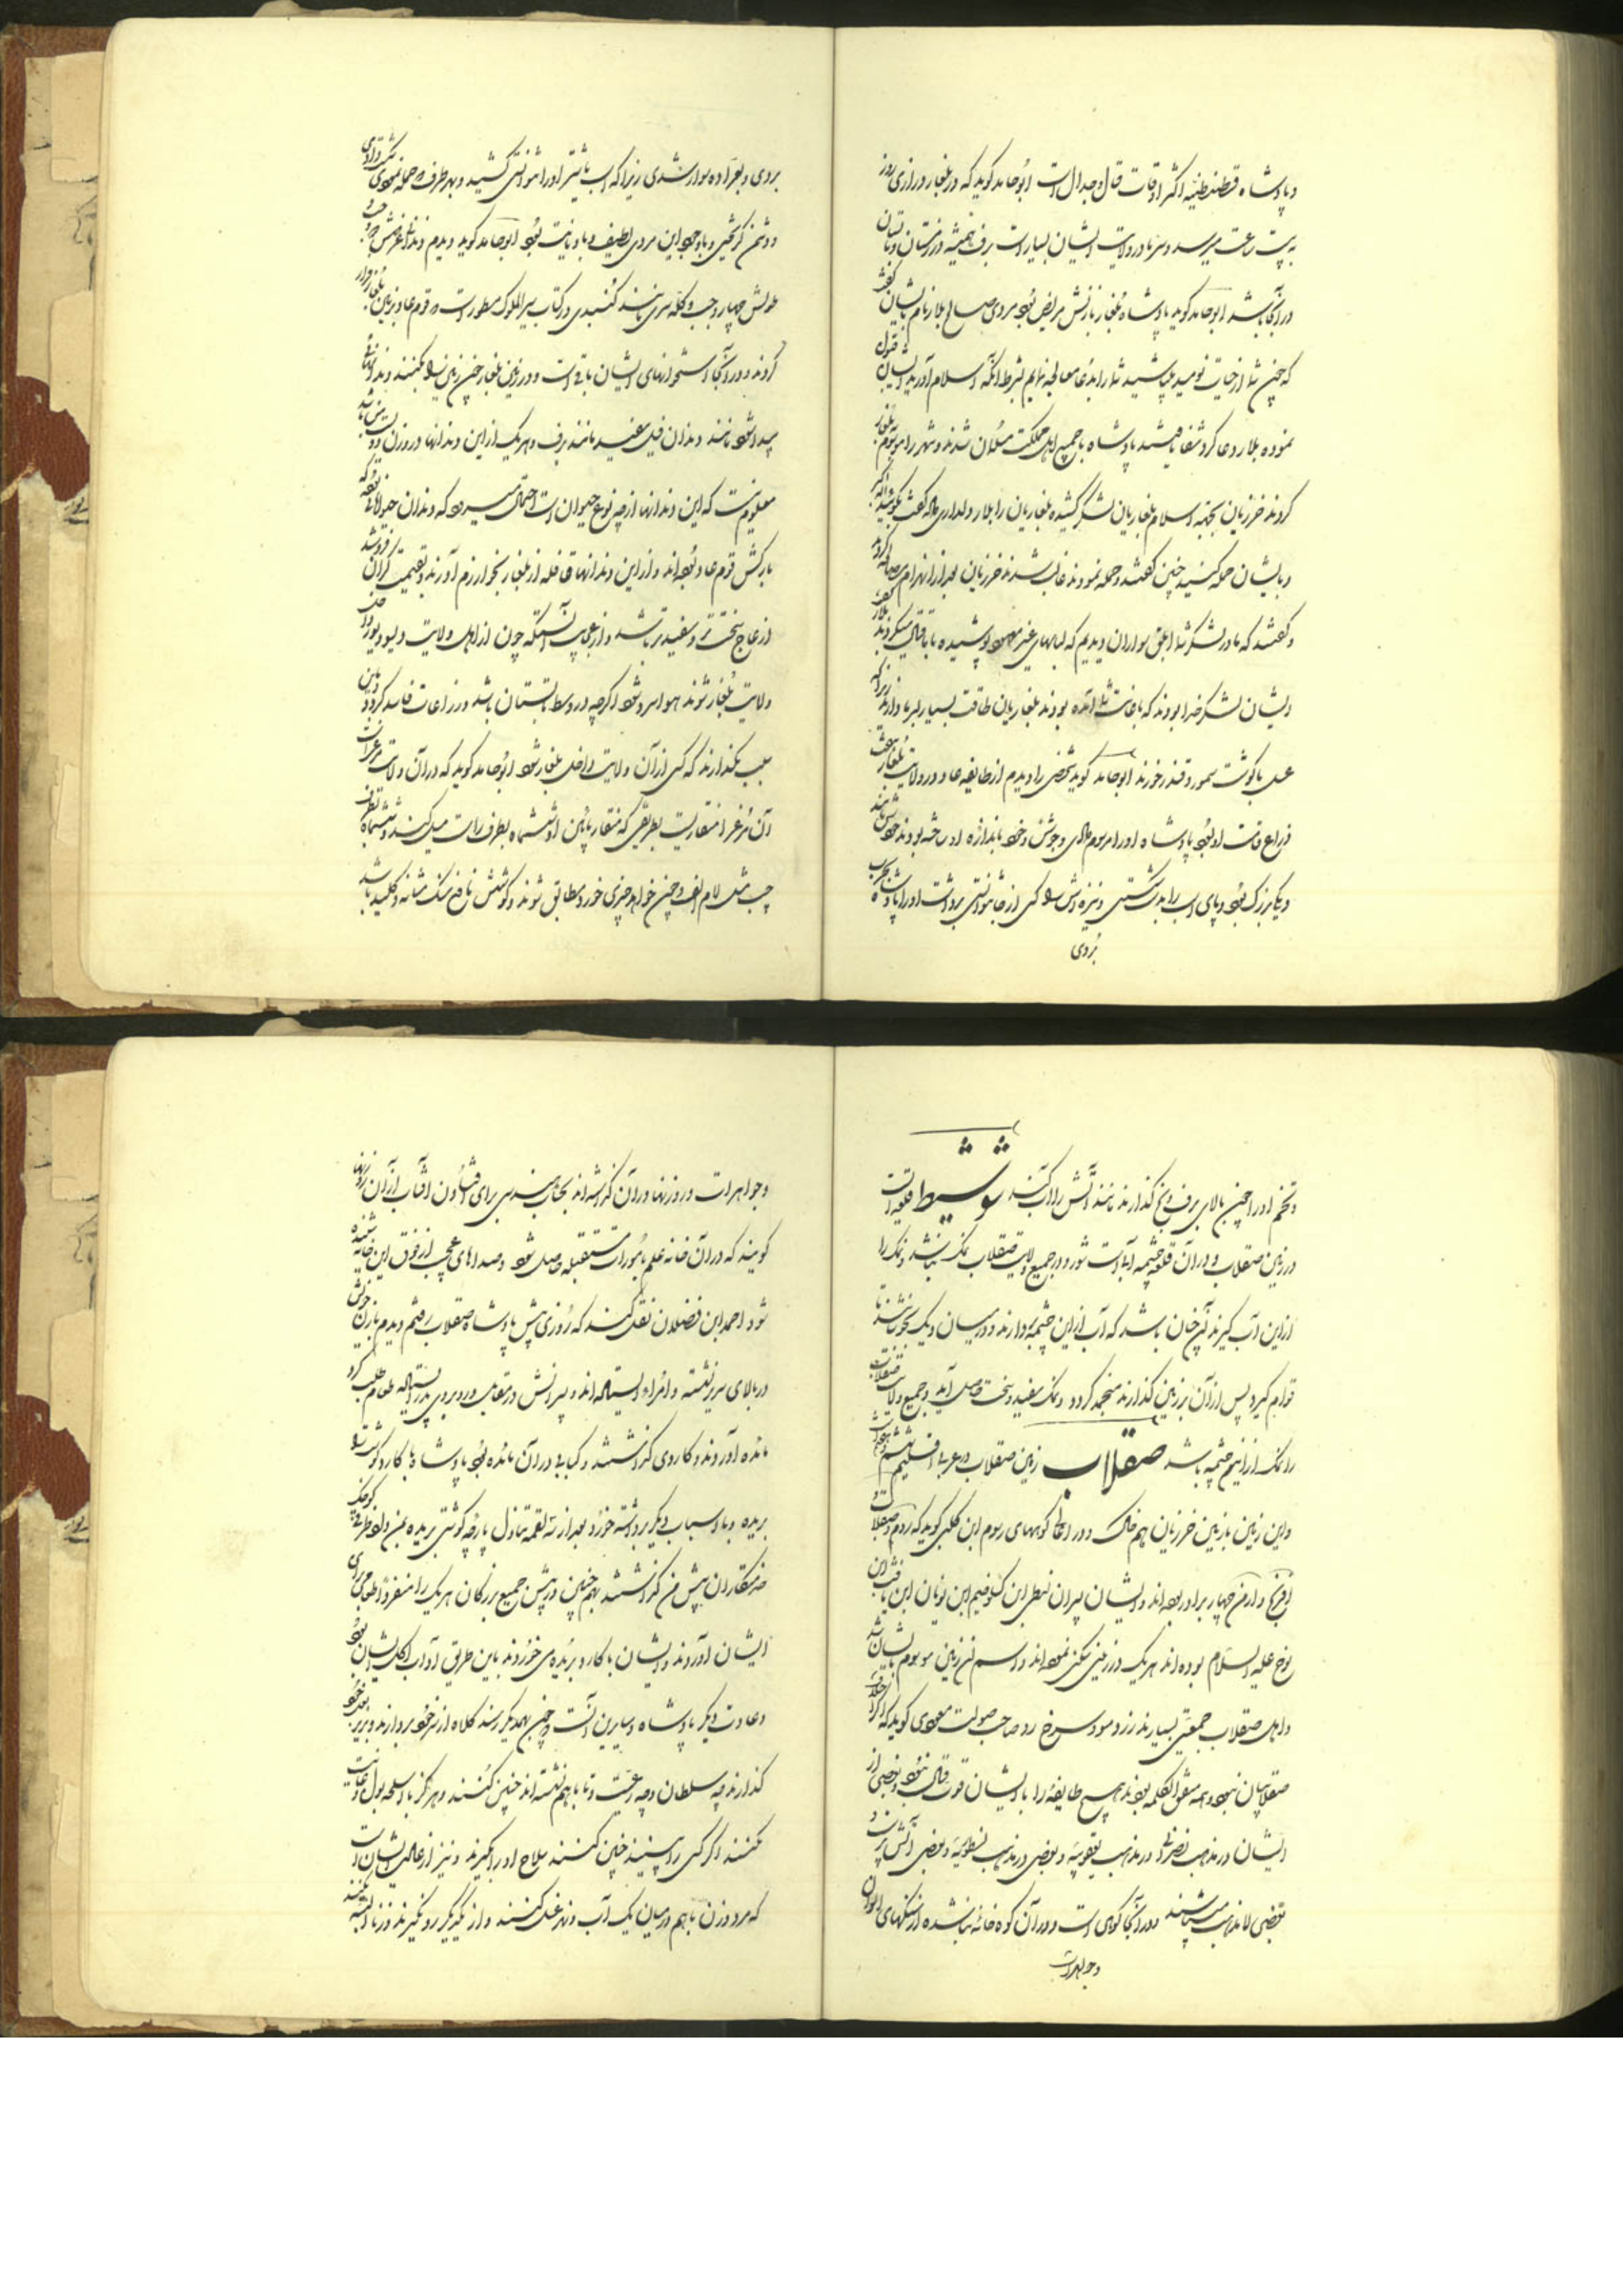 و پادشاه قسطنطنیه اکثر اوقات قتال و جدال است ابوحامد گوید که در بلغار درازی روز
به بیست ساعت میرسد و سرما در ولایت ایشان بسیار است برف همیشه در زمستان و تابستان
در آنجا باشد ابوحامد گوید پادشاه بلغار با زنش مریض بود مردی صالح بلار نام بایشان گفت
که چون شما از حیات نومید میباشید شما را بدعا معالجه نمایم بشرط آنکه اسلام آورید ایشان قبول
نموده بلار دعا کرد شفا یافتند پادشاه با جمیع اهل مملکت مسلمان شدند و شهر را موسوم بلغار
کردند خزریان بجهة اسلام بلغاریان لشکر کشیده بلغاریان را بلار دلداری داد گفت بگوئید الله اکبر
و بایشان حمله کنید چنین گفتند و حمله نمودند غالب شدند خزریان بعد از انهزام مصالحه کردند
و گفتند که ما در لشکر شما ابلق سواران دیدیم که لباسهای غیر معهود پوشیده با ما قتال میکردند بلار گفت
ایشان لشکر خدا بودند که باعانت شما آمده بودند بلغاریان طاقت بسیار بسرما دارند زیرا که
عسل با گوشت سمور و قندز خورند ابوحامد گوید شخصی را دیدم از طایفه عاد در ولایت بلغار هفت
ذراع قامت او بود پادشاه او را مرسوم دادی و جوشن و خود باندازه او ساخته بودند خودش مانند
دیک بزرگ بود و پای اسب را بدست شکستی و نیزه اش را کسی از جا نتوانستی برداشت او را پادشاه بحرب
بردی
بردی و بعراده سوار شدی زیرا که اسب یا شتر او را نتوانستی کشید و بهر طرف که حمله نمودی شکست دادی
و دشمن گریختی و با وجود این مردی لطیف و با دیانت بود ابوحامد گوید دیدم دندان عرضش دو وجب و
طولش چهار وجب و کله سری مانند گنبدی و در کتاب سیر الملوک مسطور است که قوم عاد بزمین بلغار فرار
کردند و در آنجا استخوانهای ایشان باقی است و در زمین بلغار چون زمین را بکنند دندانهائی
پیدا شود مانند دندان فیل سفید مانند برف و هر یک از این دندانها در وزن دویست من باشد
معلوم نیست که این دندانها از چه نوع حیوان است احتمال میرود که دندان حیوانات بوده که
بارکش قوم عاد بوده اند و از این دندانها قافله از بلغار بخوارزم آورند و بقیمت گران فروشند
از عاج سخت تر و سفیدتر باشد و از عجایب آنستکه چون از اهل ولایت ویسو و یورا داخل
ولایت بلغار شوند هوا سرد شود اگرچه در وسط تابستان باشد و زراعات فاسد گردد باین
سبب نگذارند که کسی از آن ولایت داخل بلغار شود ابوحامد گوید که در آن ولایت مرغیست
آن مرغرا منقاریست بطریقی که منقار پائین او ششماه بطرف راست میل میکند و ششماه بطرف
چپ مثل لام الف و چون خواهد چیزی خورد مطابق شوند و گوشتش نافع سنک مثانه و کلیه باشد
و تخم او را چون بالای برف و یخ گذارند مانند آتش را آب کند شوشیط قلعه ایست
در زمین صقلاب و در آن قلعه چشمه آبیست شور و در جمیع ولایت صقلاب نمک نباشد و نمک را
از این آب گیرند آن چنان باشد که آب از این چشمه بردارند و در میان دیک بجوشانند تا
قوام گیرد پس از آن بر زمین گذارند منجمد گردد و نمک سفید و سخت حاصل آید و جمیع ولایت صقلاب
را نمک از این چشمه باشد صقلاب زمین صقلاب در غربی اقلیم ششم و هفتم است
و این زمین با زمین خزریان هم خاک و در اعالی کوههای روم ابن کلبی گوید که روم و صقلاب و
افرنج و ارمن چهار برادر بوده اند و ایشان پسران لنطی ابن کلوخیم ابن یونان ابن یافث ابن
نوح علیه السلام بوده اند هر یک در زمینی سکنی نموده اند و اسم آن زمین موسوم بایشان شد
و اهل صقلاب جمعیتی بسیارند زرد مو و سرخ رو صاحب صولت مسعودی گوید که اگر اختلاف
صقلابیان نبود و همه متفق الکلمه بودند هیچ طایفه را با ایشان قوت قتال نبود و بعضی از
ایشان در مذهب نصرانی در مذهب یعقوبیه و بعضی در مذهب نسطوریه و بعضی آتش پرست و
بعضی لامذهب میباشند و در آنجا کوهی است و در آن کوه خانه بنا شده از سنگهای الوان
و جواهرات
و جواهرات و روزنها در آن گذاشته اند بحساب هندسی برای افتادن آفتاب از آن روزنها
گویند که در آن خانه علم بامورات مستقبله حاصل شود و صداهای عجیب از فوق این خانه شنیده
شود احمد ابن فضلان نقل کند که روزی پیش پادشاه صقلاب رفتم دیدم با زن خویش
در بالای سریر نشسته و امراء ایستاده اند و پسرانش در مقابل و روبروی پدر ایستاده طعام طلب کرد
مائده آوردند و کاردی گذاشتند و کبابی در آن مائده بود پادشاه با کارد گوشت را
بریده و با اسباب دیگر برداشته خورد بعد از سه لقمه تناول پارچه گوشتی بریده بمن داد ظرفی کوچک
خدمتکاران پیش من گذاشتند همچنین در پیش جمیع بزرگان هر یک را منفرداً طعامی برای
ایشان آوردند و ایشان با کارد بریده می خوردند باین طریق آداب اکل ایشان بود
و عادت دیگر پادشاه و سایرین آنست چون بهمدیگر رسند کلاه از سر خود بردارند و بزیر بغل خود
گذارند چه سلطان و چه رعیت و تا با هم نشسته اند چنین کنند و هرگز با اسلحه بول و غایت
نکنند اگر کسی را ببینند چنین کند سلاح او را بگیرند و نیز از عادات ایشان است
که مرد و زن با هم در میان یک آب و نهر غسل کنند و از یکدیگر رو نگیرند و زنا البته نکنند